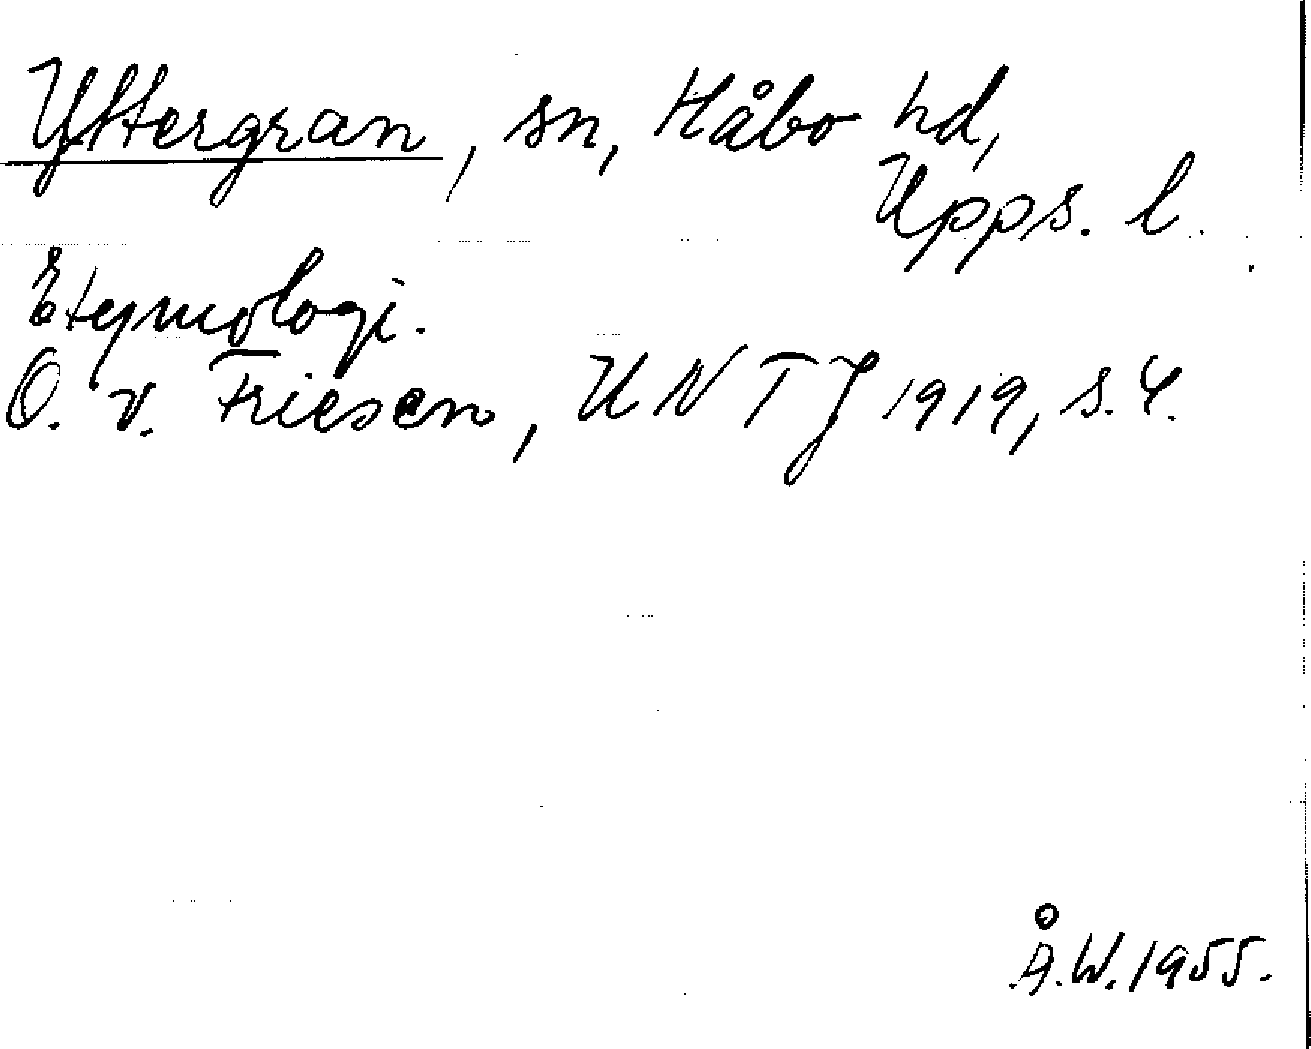 Yttergran, sn, Håbo hd,
Upps. l.
Etymologi.
O. v. Friesen, UNTJ 1919, s. 4.
Å.W. 1955.